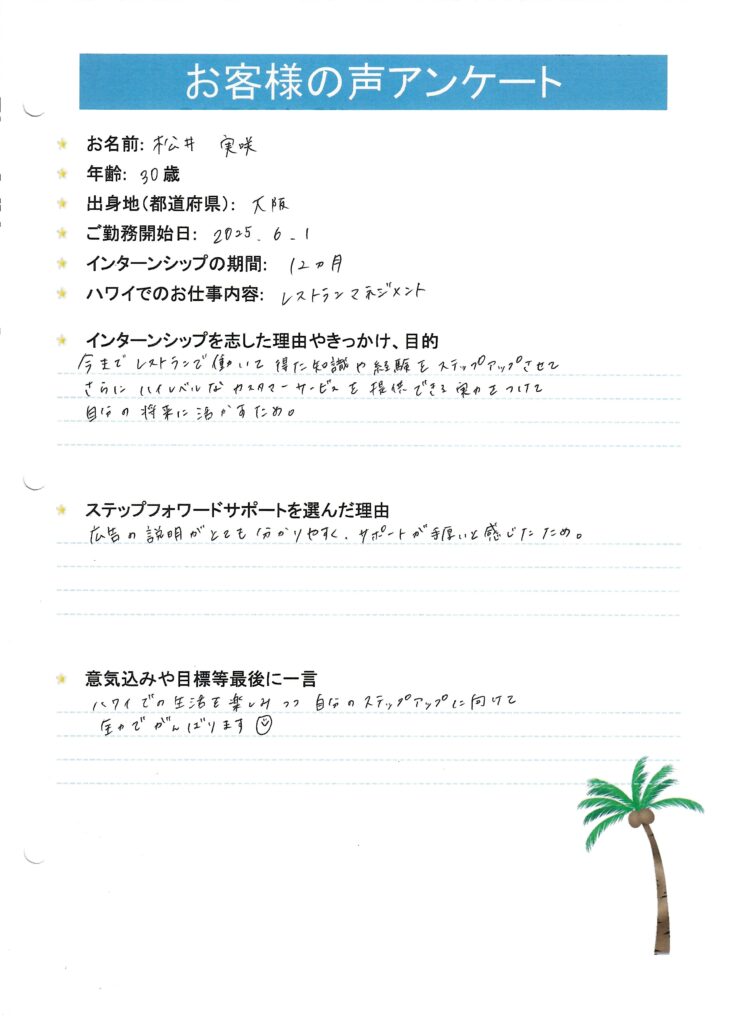 お客様の声アンケート
お名前: 松井 実咲
年齢: 30歳
出身地(都道府県): 大阪
ご勤務開始日: 2025.6.1
インターンシップの期間: 12ヵ月
ハワイでのお仕事内容: レストランマネジメント
インターンシップを志した理由やきっかけ、目的
今まで レストランで 働いて 得た知識や経験を ステップアップさせて
さらに ハイレベルな カスタマーサービスを 提供できる 実力をつけて
自分の 将来に 活かすため。
ステップフォワードサポートを選んだ理由
広告の 説明が とても 分かりやすく、サポートが 手厚いと感じたため。
意気込みや目標等最後に一言
ハワイでの 生活を 楽しみつつ 自分のステップアップに向けて
全力で がんばります☺